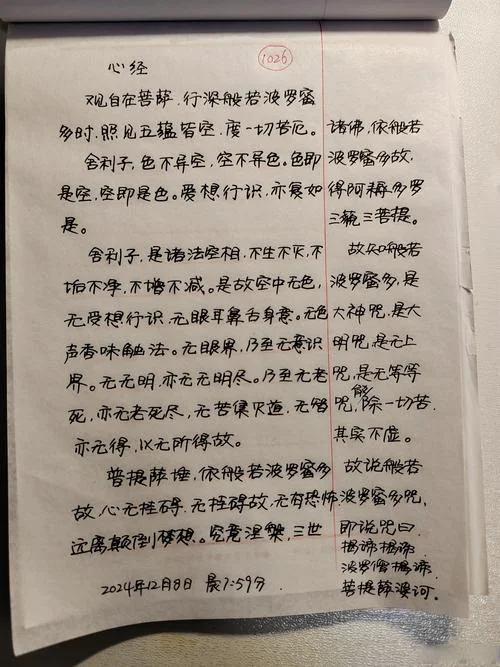 1026
心经
观自在菩萨，行深般若波罗蜜
多时，照见五蕴皆空，度一切苦厄。
舍利子，色不异空，空不异色。色即
是空，空即是色。受想行识，亦复如
是。
舍利子，是诸法空相，不生不灭，不
垢不净，不增不减。是故空中无色，
无受想行识，无眼耳鼻舌身意。无色
声香味触法。无眼界，乃至无意识
界。无无明，亦无无明尽。乃至无老
死，亦无老死尽，无苦集灭道，无智
亦无得，以无所得故。
菩提萨埵，依般若波罗蜜多
故，心无挂碍，无挂碍故，无有恐怖，
远离颠倒梦想。究竟涅槃，三世
2024年12月8日 晨7:59分
诸佛，依般若
波罗蜜多故，
得阿耨多罗
三藐三菩提。
故知般若
波罗蜜多，是
大神咒，是大
明咒，是无上
咒，是无等等
咒，能除一切苦，
真实不虚。
故说般若
波罗蜜多咒，
即说咒曰
揭谛揭谛，
波罗僧揭谛，
菩提萨婆诃。